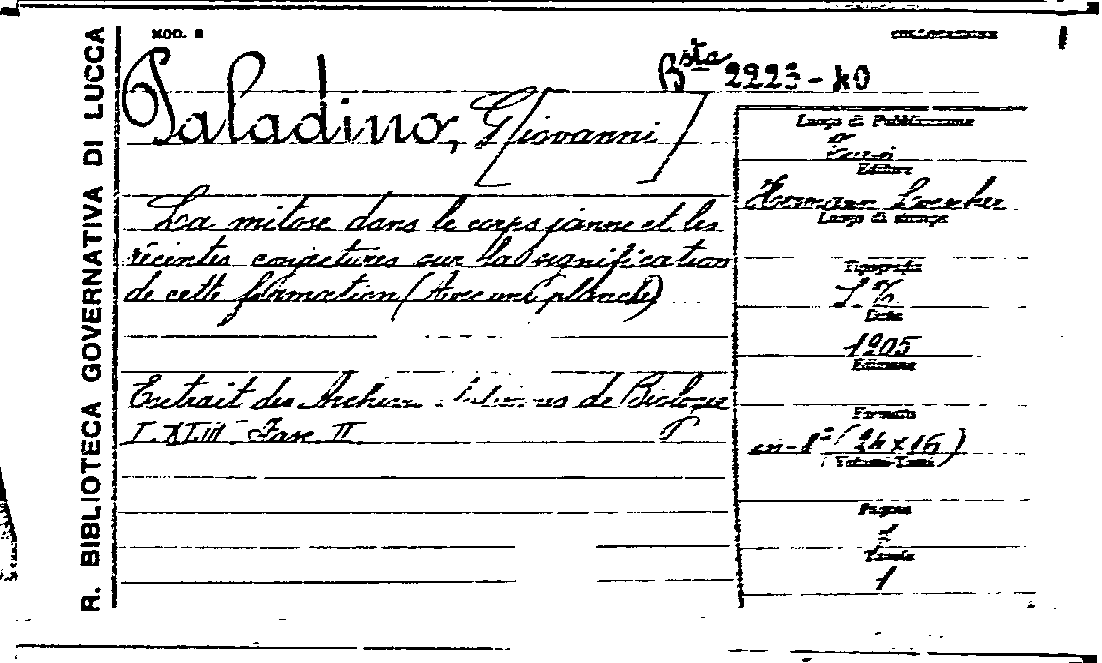 R. BIBLIOTECA GOVERNATIVA DI LUCCA
MOD.
COLLOCAZIONE
Bsta 2223-40
Paladino, G[iovanni]
La mitose dans le corps jaune et les
récentes conjetures sur la signification
de cette formation (Avec une planche)
Extrait des Archives de Biologie
Fasc. II
Luogo di Pubblicazione
Editore
Hermann Loescher
Luogo di stampa
Tipografia
Data
1905
Edizione
Formato
in-8° (24x16)
Volume-Tomi
Pagine
Tavole
1